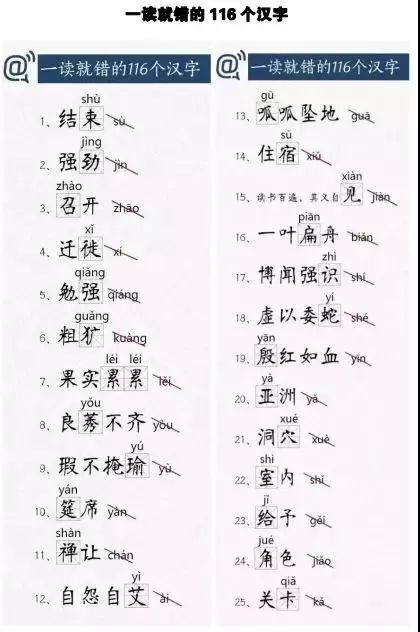 一读就错的 116 个汉字
@ 一读就错的116个汉字
shù
1、结束 sù
jìng
2、强劲 jìn
zhào
3、召开 zhāo
xǐ
4、迁徙 xí
qiǎng
5、勉强 qiáng
guǎng
6、粗犷 kuàng
léi léi
7、果实累累 lěi
yǒu
8、良莠不齐 yòu
yú
9、瑕不掩瑜 yù
yán
10、筵席 yàn
shàn
11、禅让 chán
yì
12、自怨自艾 ài
@ 一读就错的116个汉字
gū
13、呱呱坠地 guā
sù
14、住宿 xiǔ
xiàn
15、读书百遍，其义自见 jiàn
piān
16、一叶扁舟 biǎn
zhì
17、博闻强识 shí
yí
18、虚以委蛇 shé
yān
19、殷红如血 yīn
yà
20、亚洲 yǎ
xué
21、洞穴 xuè
shì
22、室内 shǐ
jǐ
23、给予 gěi
jué
24、角色 jiǎo
qiǎ
25、关卡 kǎ